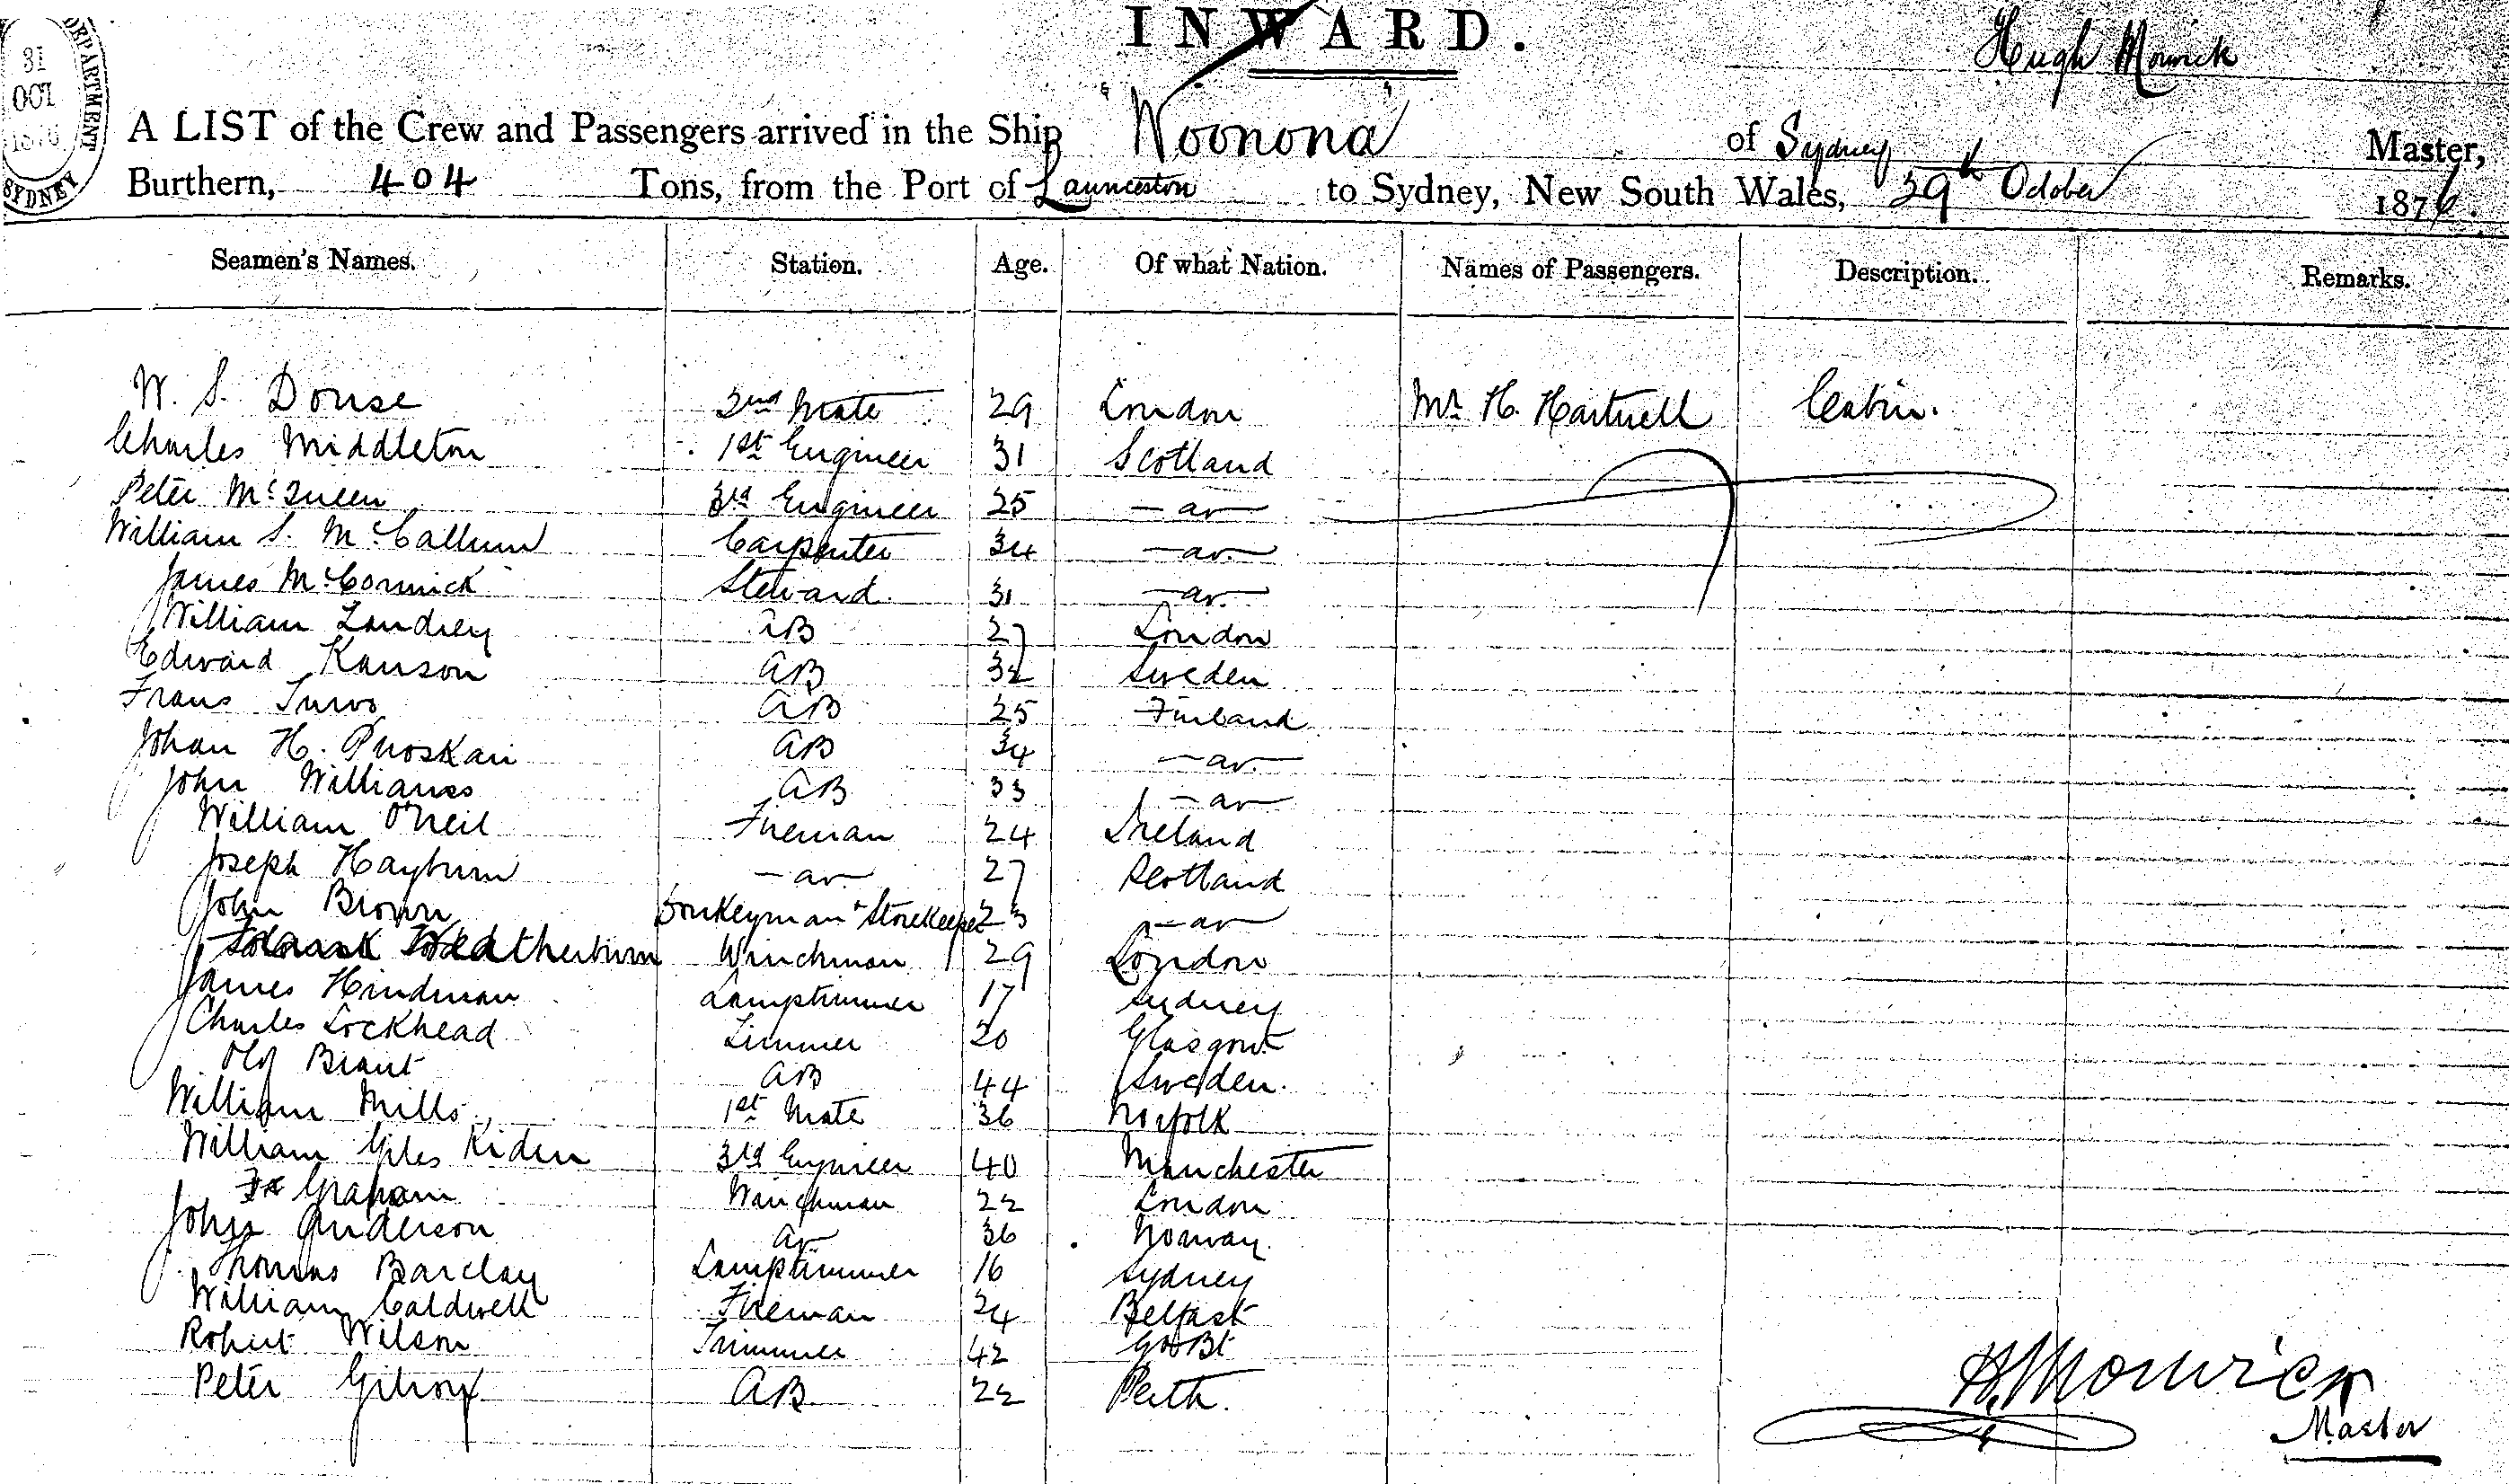 31
OCT
1876
DEPARTMENT
SYDNEY
INWARD.
Hugh Monick
A LIST of the Crew and Passengers arrived in the Ship Woonona of Sydney Master,
Burthern, 404 Tons, from the Port of Launceston to Sydney, New South Wales, 29th October 1876.
Seamen's Names. Station. Age. Of what Nation. Names of Passengers. Description. Remarks.
W. S. Douse 2nd Mate 29 London Mr H. Hartnell Cabin.
Charles Middleton 1st Engineer 31 Scotland
Peter McQueen 3rd Engineer 25 - do -
William S. McCallum Carpenter 34 - do -
James McCormick Steward 31 - do -
William Landrey AB 27 London
Edward Kanson AB 32 Sweden
Frans Turvo AB 25 Finland
Johan H. Puoskari AB 34 - do -
John Williams AB 33 - do -
William O'Neil Fireman 24 Ireland
Joseph Hayburn - do - 27 Scotland
John Brown Donkeyman & Storekeeper 23 - do -
Weatherburn Winchman 29 London
James Hindman Lamptrimmer 17 Sydney
Charles Lockhead Trimmer 20 Glasgow
Olof Brant AB 44 Sweden.
William Mills 1st Mate 36 Norfolk
William Giles Kiden 3rd Engineer 40 Manchester
Graham Winchman 22 London
John Anderson do 36 Norway.
Thomas Barclay Lamptrimmer 16 Sydney
William Caldwell Fireman 24 Belfast
Robert Wilson Trimmer 42 Gt Bt
Peter Gilroy AB 22 Perth.
H. Monick
Master